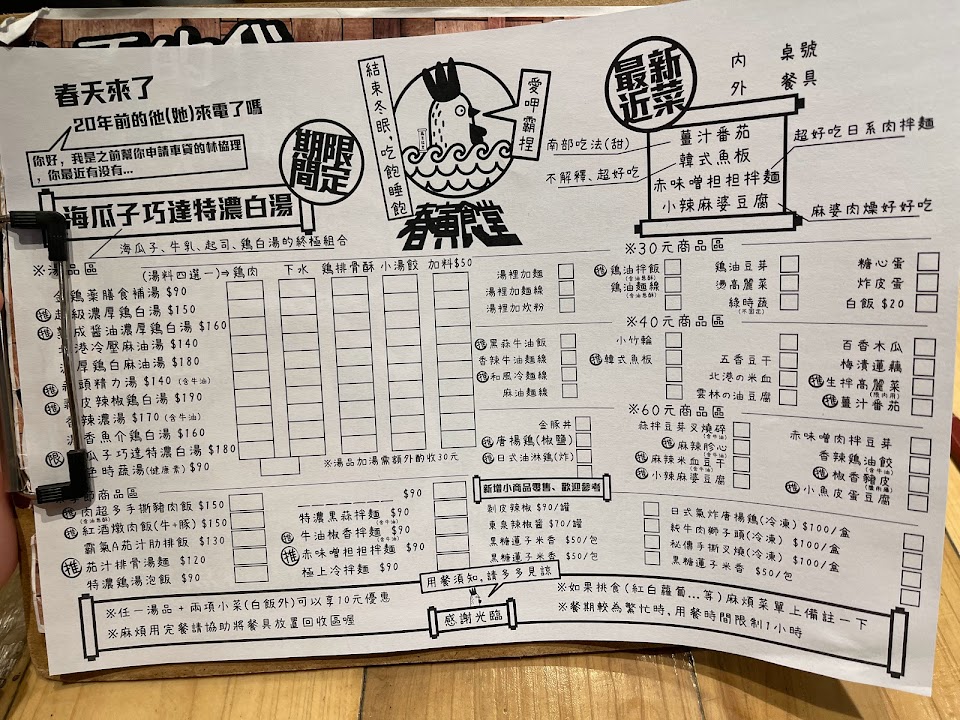 春天來了
20年前的他(她)來電了嗎
你好，我是之前幫你申請車貸的林協理
，你最近有沒有...
期間限定
海瓜子巧達特濃白湯
海瓜子、牛乳、起司、鷄白湯的終極組合
結束冬眠，吃飽睡飽
愛呷霸捏
春寅食堂
最近新菜
內 桌號
外 餐具
薑汁番茄
韓式魚板
赤味噌担担拌麵
小辣麻婆豆腐
南部吃法(甜)
不解釋、超好吃
超好吃日系肉拌麵
麻婆肉燥好好吃
※湯品區 (湯料四選一)⇒鷄肉 下水 鷄排骨酥 小湯餃 加料$50
鷄藥膳食補湯 $90
推 級濃厚鷄白湯 $150
推 成醬油濃厚鷄白湯 $160
港冷壓麻油湯 $140
厚鷄白麻油湯 $180
推 頭精力湯 $140 (含牛油)
推 皮辣椒鷄白湯 $190
香辣濃湯 $170 (含牛油)
香魚介鷄白湯 $160
限 瓜子巧達特濃白湯 $180
時蔬湯(健康素) $90
※湯品加湯需額外酌收30元
湯裡加麵
湯裡加麵線
湯裡加炊粉
※30元商品區
推 鷄油拌飯
(含油蔥酥)
鷄油麵線
(含油蔥酥)
鷄油豆芽
燙高麗菜
綠時蔬
(不固定)
糖心蛋
炸皮蛋
白飯 $20
※40元商品區
推 黑蒜牛油飯
香辣牛油麵線
推 和風冷麵線
麻油麵線
小竹輪
推 韓式魚板
五香豆干
北港の米血
雲林の油豆腐
百香木瓜
梅漬蓮藕
推 生拌高麗菜
(限內用)
推 薑汁番茄
※60元商品區
金豚丼
推 唐揚鷄(椒鹽)
推 日式油淋鷄(炸)
蒜拌豆芽叉燒碎
(含牛油)
推 麻辣胗心
(含牛油)
推 麻辣米血豆干
(含牛油)
推 小辣麻婆豆腐
赤味噌肉拌豆芽
香辣鷄油餃
(含牛油)
推 椒香豬皮
推 小魚皮蛋豆腐
商品區
推 肉超多手撕豬肉飯 $150
(含油蔥酥)
推 紅酒燉肉飯(牛+豚) $150
霸氣A茄汁肋排飯 $130
推 茄汁排骨湯麵 $120
特濃鷄湯泡飯 $90
$90
特濃黑蒜拌麵 $90
推 牛油椒香拌麵 $90
(含牛油)
推 赤味噌担担拌麵 $90
極上冷拌麵 $90
新增小商品零售、歡迎參考
剝皮辣椒 $90/罐
東泉辣椒醬 $70/罐
黑糖蓮子米香 $50/包
黑糖蓮子米香 $50/包
日式氣炸唐揚鷄(冷凍) $100/盒
純牛肉獅子頭(冷凍) $100/盒
秘傳手撕叉燒(冷凍) $100/盒
黑糖蓮子米香 $50/包
用餐須知，請多多見諒
感謝光臨
※任一湯品+兩項小菜(白飯外)可以享10元優惠
※麻煩用完餐請協助將餐具放置回收區喔
※如果挑食(紅白蘿蔔...等)麻煩菜單上備註一下
※餐期較為繁忙時，用餐時間限制1小時